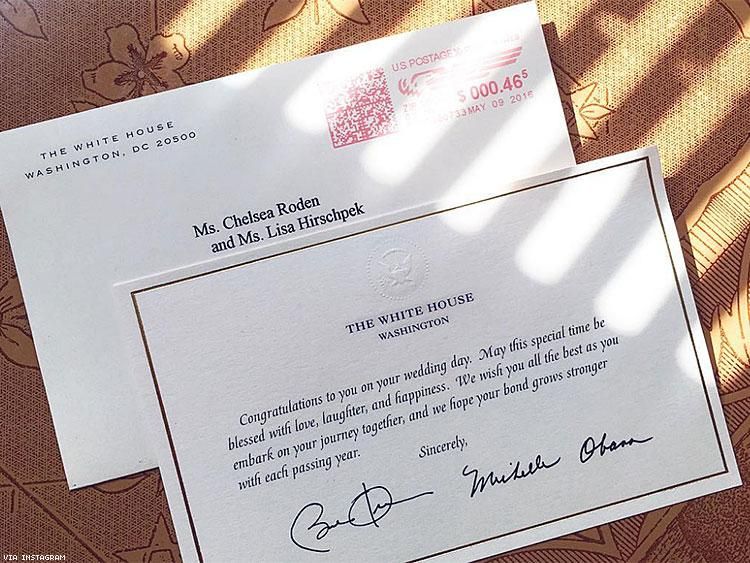 THE WHITE HOUSE
WASHINGTON, DC 20500
U.S. POSTAGE
$ 000.46⁵
MAY 09 2016
Ms. Chelsea Roden
and Ms. Lisa Hirschpek
THE WHITE HOUSE
WASHINGTON
Congratulations to you on your wedding day. May this special time be
blessed with love, laughter, and happiness. We wish you all the best as you
embark on your journey together, and we hope your bond grows stronger
with each passing year.
Sincerely,
Michelle Obama
VIA INSTAGRAM